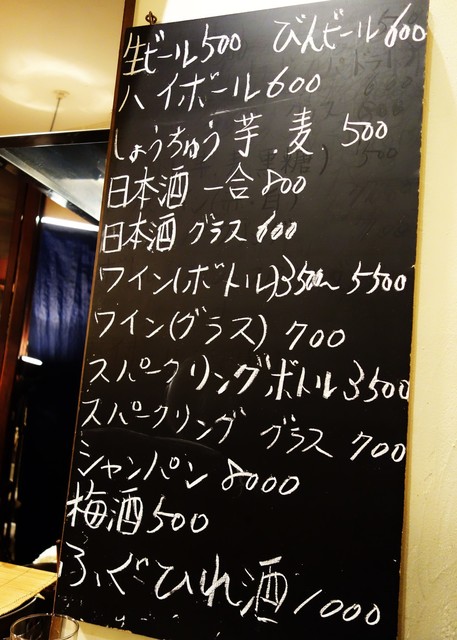 生ビール500 びんビール600
ハイボール600
しょうちゅう 芋.麦. 500
日本酒 一合800
日本酒 グラス600
ワイン(ボトル)3500~5500
ワイン(グラス) 700
スパークリングボトル3500
スパークリング グラス 700
シャンパン 8000
梅酒500
ふぐひれ酒1000